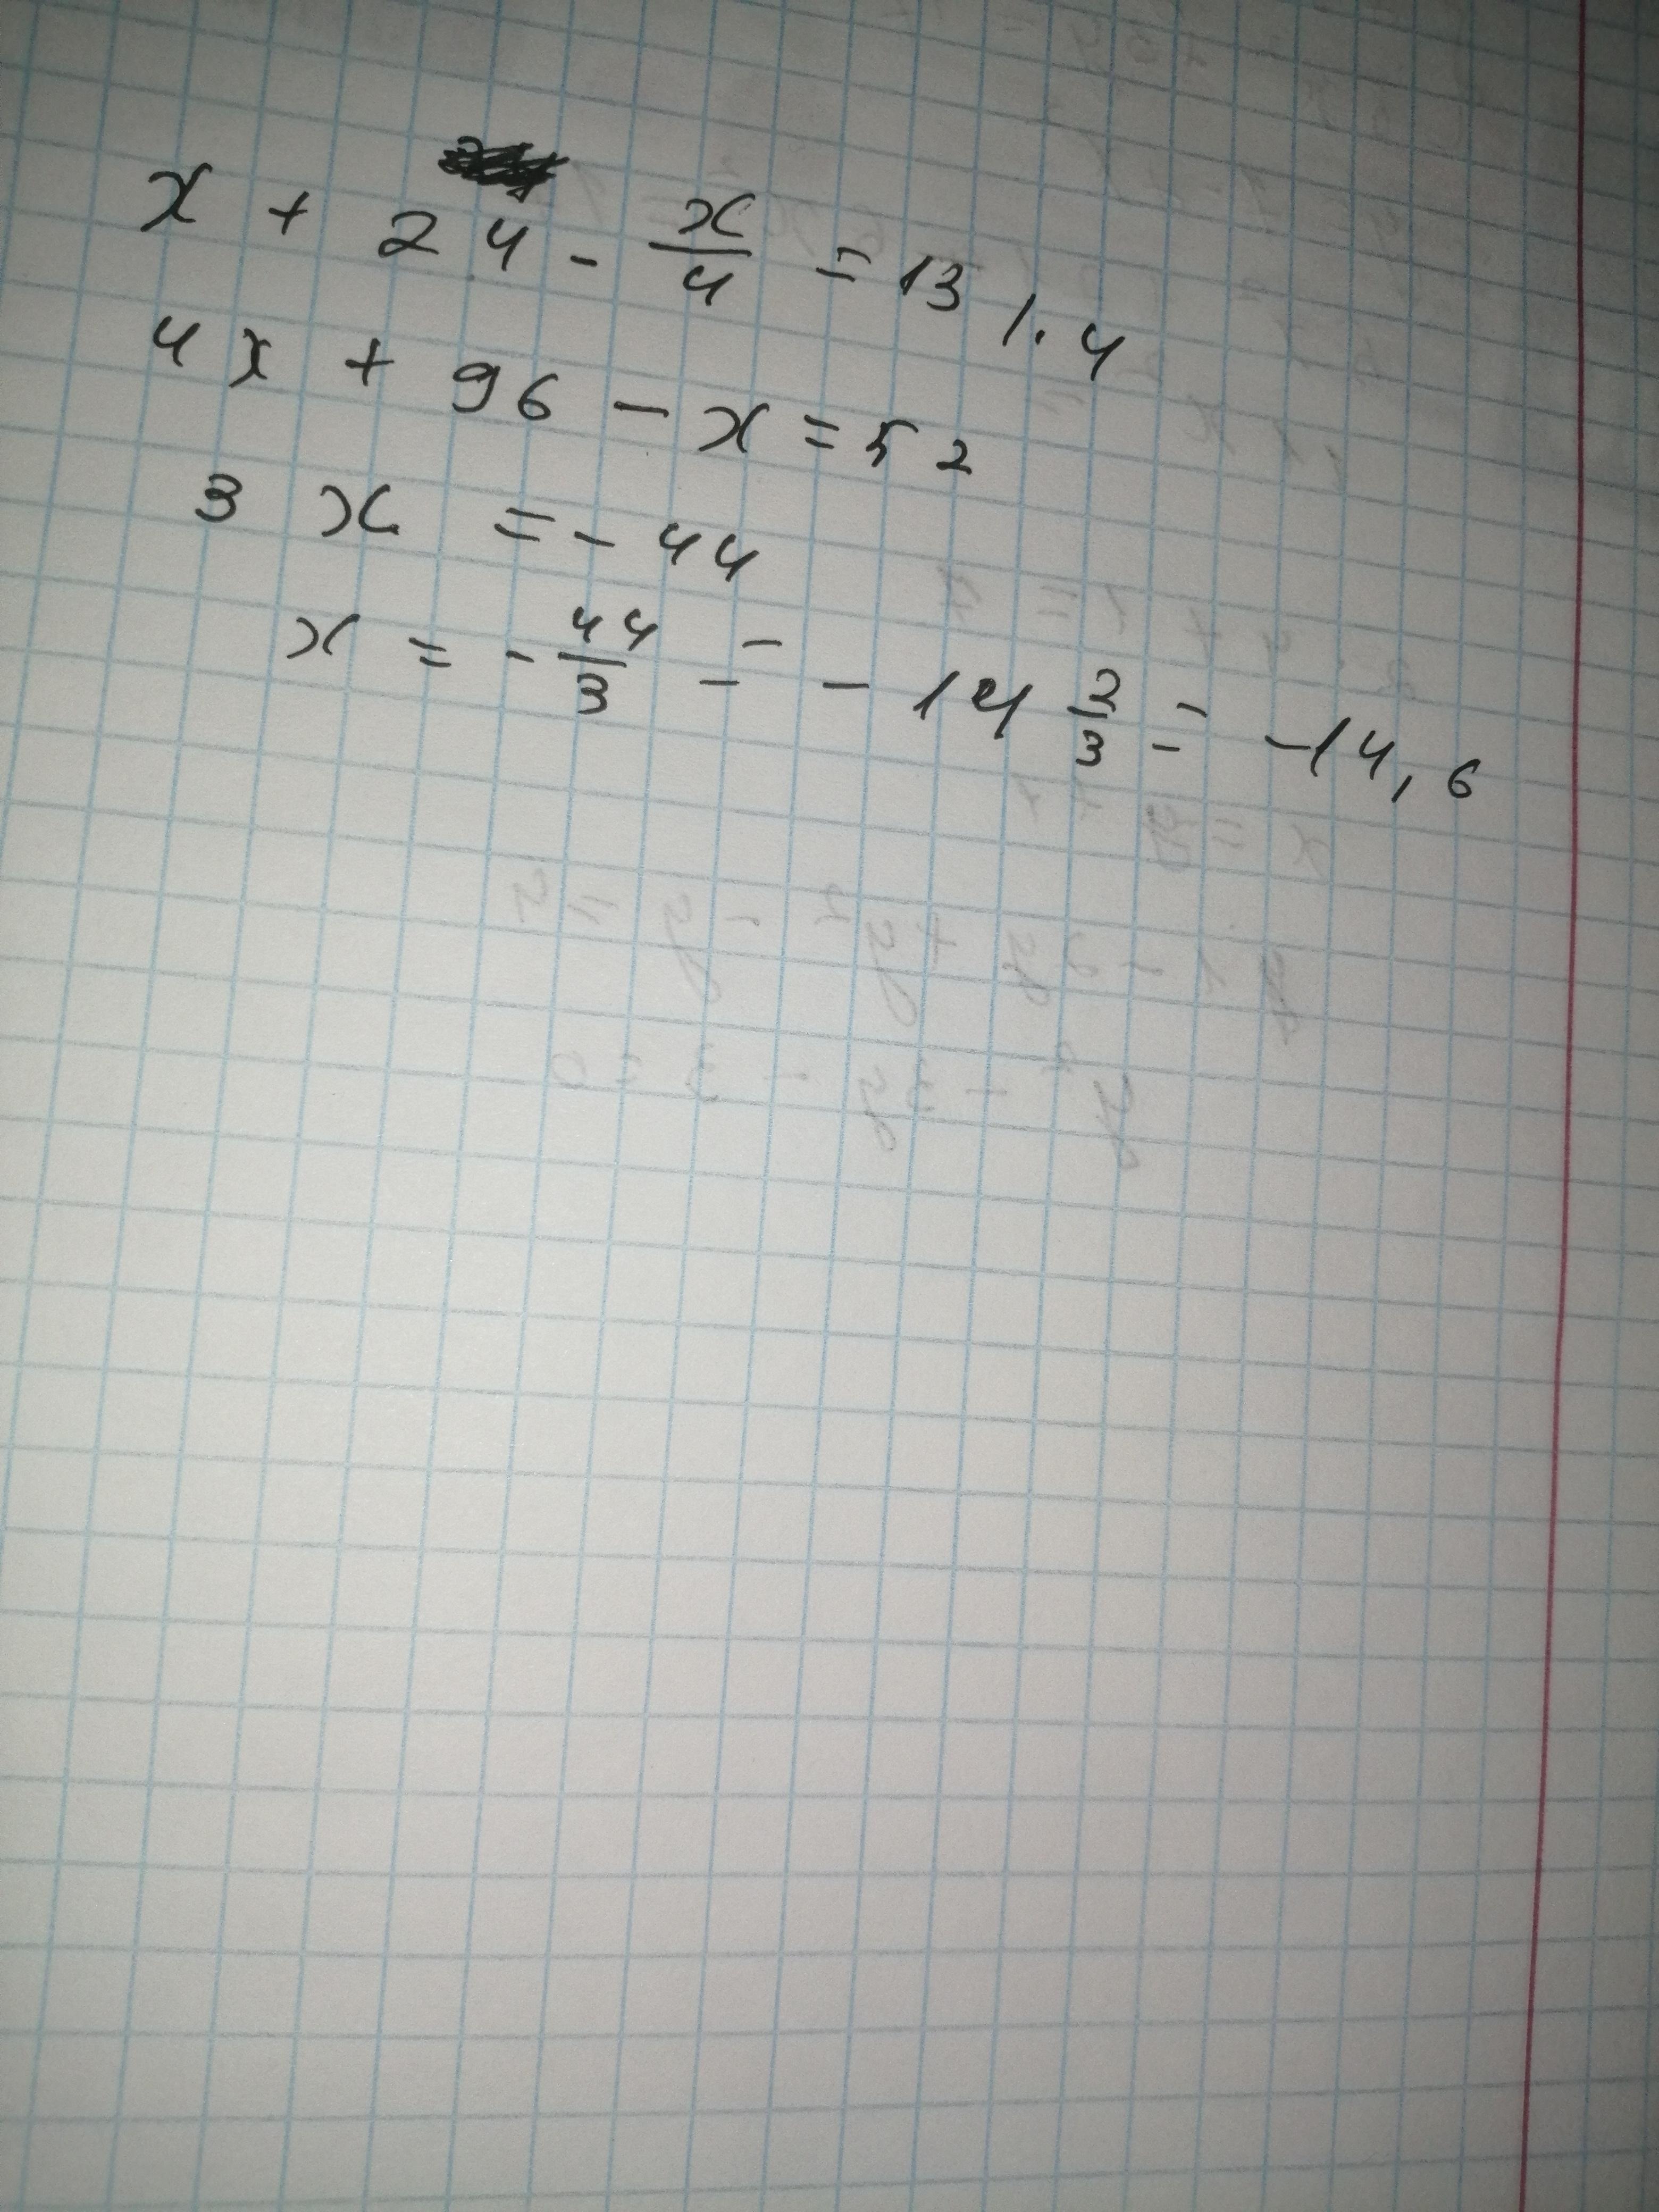 x + 24 - x/4 = 13 /· 4
4x + 96 - x = 52
3x = - 44
x = - 44/3 = - 14 2/3 = -14,6